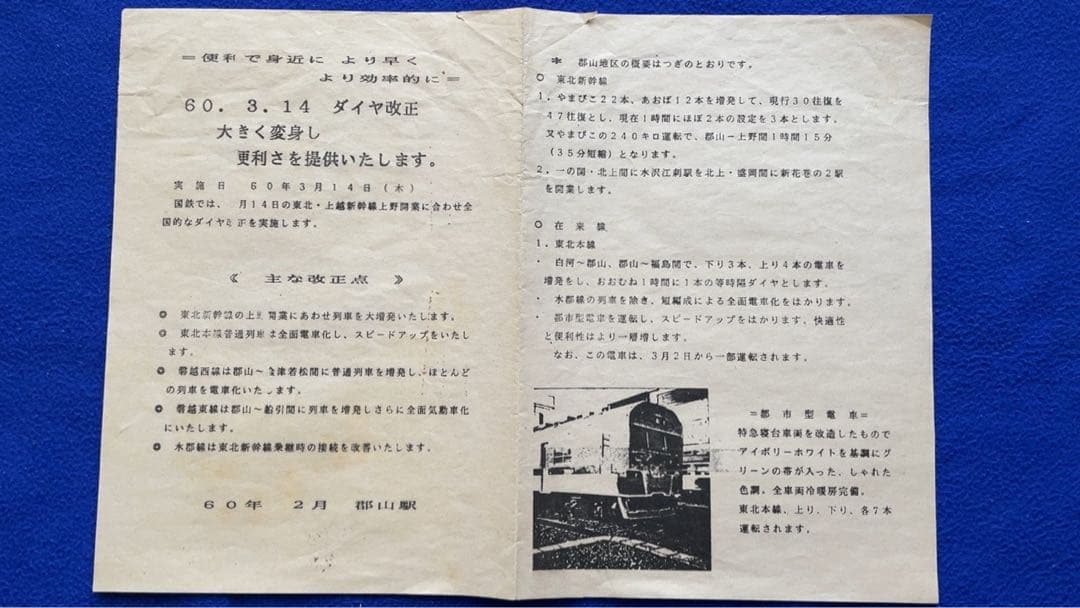 =便利で身近に より早く
より効率的に=
60. 3. 14 ダイヤ改正
大きく変身し
更利さを提供いたします。
実施日 60年3月14日(木)
国鉄では、 月14日の東北・上越新幹線上野開業に合わせ全
国的なダイヤ 正を実施します。
《 主な改正点 》
◎ 東北新幹線の上 開業にあわせ列車を大増発いたします。
◎ 東北本線普通列車は全面電車化し、スピードアップをいたし
ます。
◎ 磐越西線は郡山〜 津若松間に普通列車を増発し、ほとんど
の列車を電車化いたします。
◎ 磐越東線は郡山〜船引間に列車を増発しさらに全面気動車化
にいたします。
◎ 水郡線は東北新幹線乗継時の接続を改善いたします。
60年 2月 郡山駅
* 郡山地区の概要はつぎのとおりです。
○ 東北新幹線
1.やまびこ22本、あおば12本を増発して、現行30往復を
47往復とし、現在1時間にほぼ2本の設定を3本とします。
又やまびこの240キロ運転で、郡山ー上野間1時間15分
(35分短縮)となります。
2.一の関・北上間に水沢江刺駅を北上・盛岡間に新花巻の2駅
を開業します。
○ 在来線
1.東北本線
・ 白河〜郡山、郡山〜福島間で、下り3本、上り4本の電車を
増発をし、おおむね1時間に1本の等時隔ダイヤとします。
・ 水郡線の列車を除き、短編成による全面電車化をはかります。
・ 都市型電車を運転し、スピードアップをはかります。快適性
と便利性はより一層増します。
なお、この電車は、3月2日から一部運転されます。
=都市型電車=
特急寝台車両を改造したもので
アイボリーホワイトを基調にグ
リーンの帯が入った、しゃれた
色調。全車両冷暖房完備。
東北本線、上り、下り、各7本
運転されます。